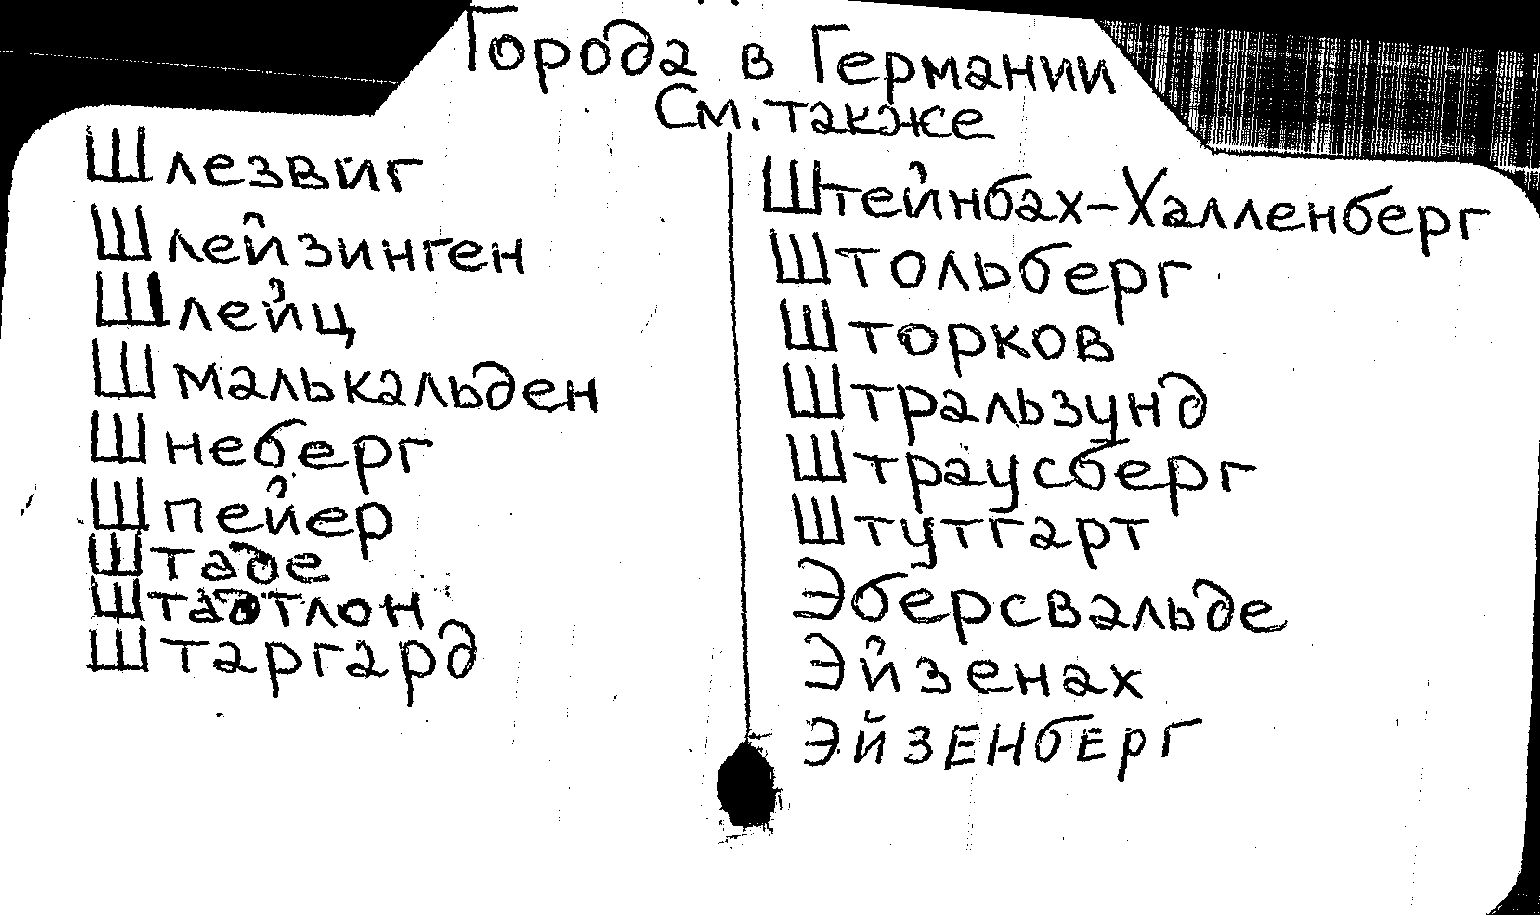 Города в Германии
См. также
Шлезвиг
Шлейзинген
Шлейц
Шмалькальден
Шнеберг
Шпейер
Штаде
Штадтлон
Штаргард
Штейнбах-Халленберг
Штольберг
Шторков
Штральзунд
Штраусберг
Штутгарт
Эберсвальде
Эйзенах
Эйзенберг